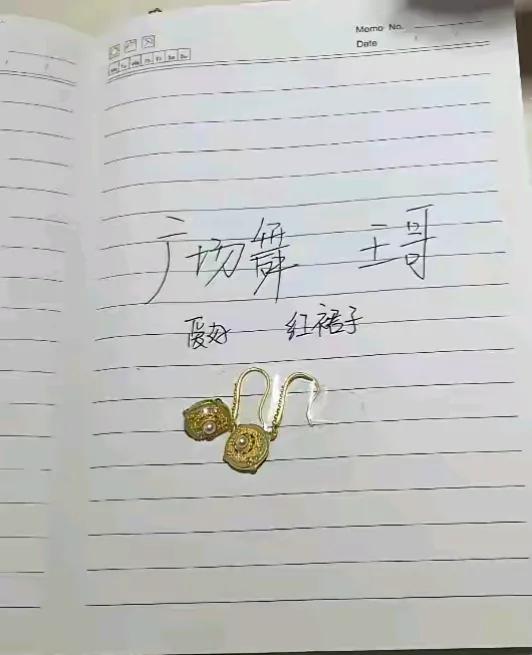 Memo No.
Date
广场舞 王哥
爱好 红裙子